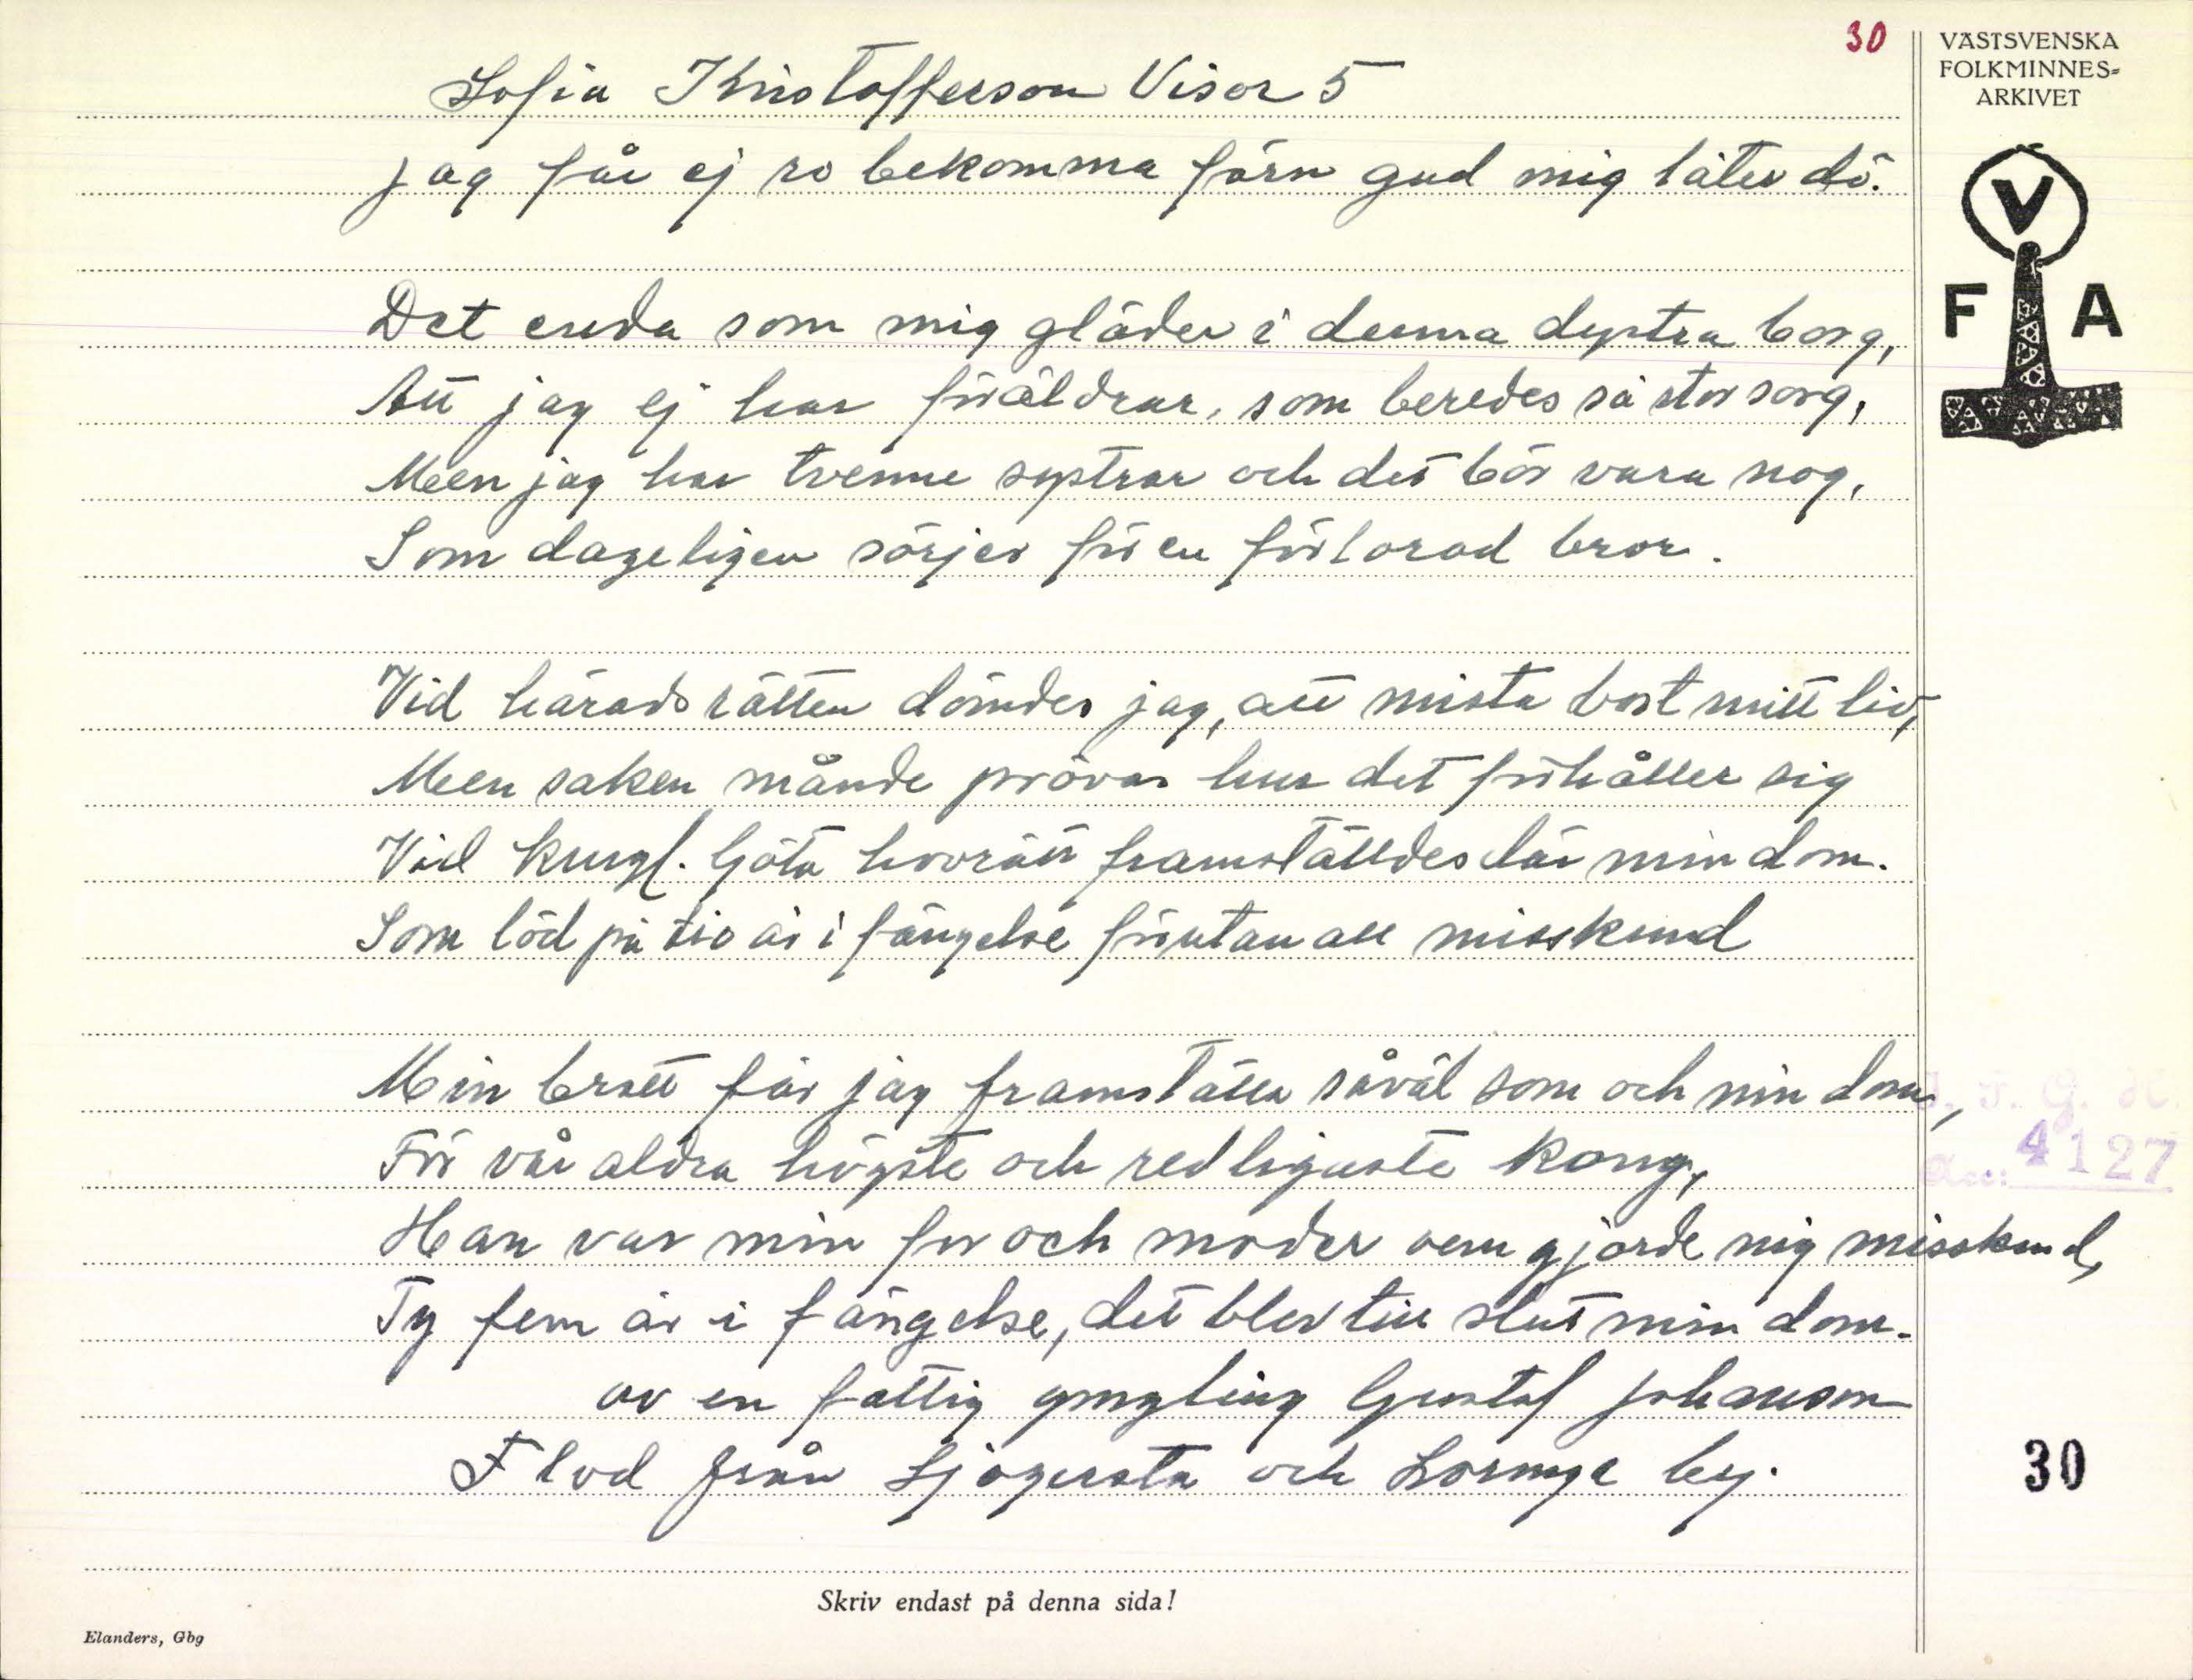 30
VÄSTSVENSKA
FOLKMINNES-
ARKIVET
V
F A
Sofia Kristofferson Visor 5
jag får ej ro bekomma förn gud mig låter dö.
Det enda som mig gläder i denna dystra borg,
Att jag ej har föräldrar, som beredes så stor sorg,
Meen jag har tvenne systrar och det bör vara nog,
Som dageligen sörjer för en förlorad bror.
Vid häradsrätten dömdes jag, att mista bort mitt liv,
Meen saken månde prövas hur det förhåller sig
Vid Kungl. Göta hovrätt framställdes där min dom.
Som löd på tio år i fängelse förutan all misskund
Min brott får jag framställa såväl som och min dom,
För vår aldra högste och redligaste Kong,
Han var min far och moder som gjorde mig misskund,
Ty fem år i fängelse, det blev till slut min dom.
av en fattig yngling Gustaf Johanson
Flod från Sjögersta och by.
4127
30
Skriv endast på denna sida!
Elanders, Gbg